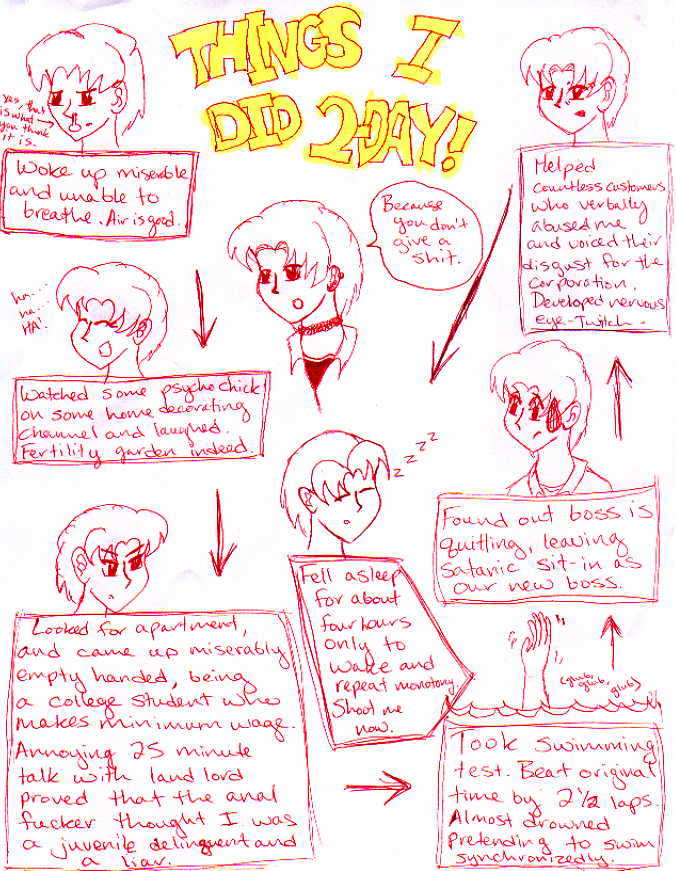 THINGS I
DID 2-DAY!
yes, that
is what
you think
it is.
Woke up miserable
and unable to
breathe. Air is good.
Because
you don't
give a
shit.
ha...
ha...
HA!
Watched some psycho chick
on some home decorating
channel and laughed.
Fertility garden indeed.
Looked for apartment,
and came up miserably
empty handed, being
a college student who
makes minimum wage.
Annoying 25 minute
talk with land lord
proved that the anal
fucker thought I was
a juvenile delinquent and
a liar.
(glub,
glub,
glub)
Took swimming
test. Beat original
time by 2 1/2 laps.
Almost drowned
pretending to swim
synchronizedly.
Found out boss is
quitting, leaving
satanic sit-in as
our new boss.
Helped
countless customers
who verbally
abused me
and voiced their
disgust for the
corporation.
Developed nervous
eye-twitch.
zzzz
Fell asleep
for about
four hours
only to
wake and
repeat monotony.
Shoot me
now.